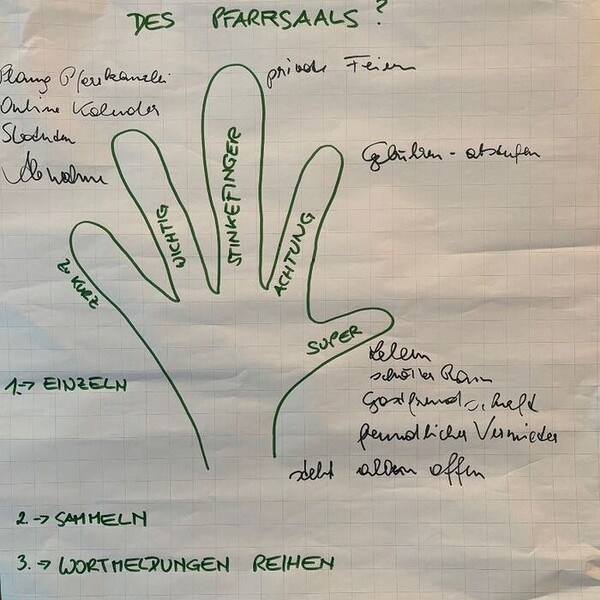 DES PFARRSAALS?
private Feiern
Planung Pfarrkanzlei
Online Kalender
Gebühren - abstufen
STINKEFINGER
WICHTIG
ACHTUNG
ZU KURZ
SUPER
schöner Raum
Gastfreundschaft
freundlicher Vermieter
steht allen offen
1. → EINZELN
2. → SAMMELN
3. → WORTMELDUNGEN REIHEN